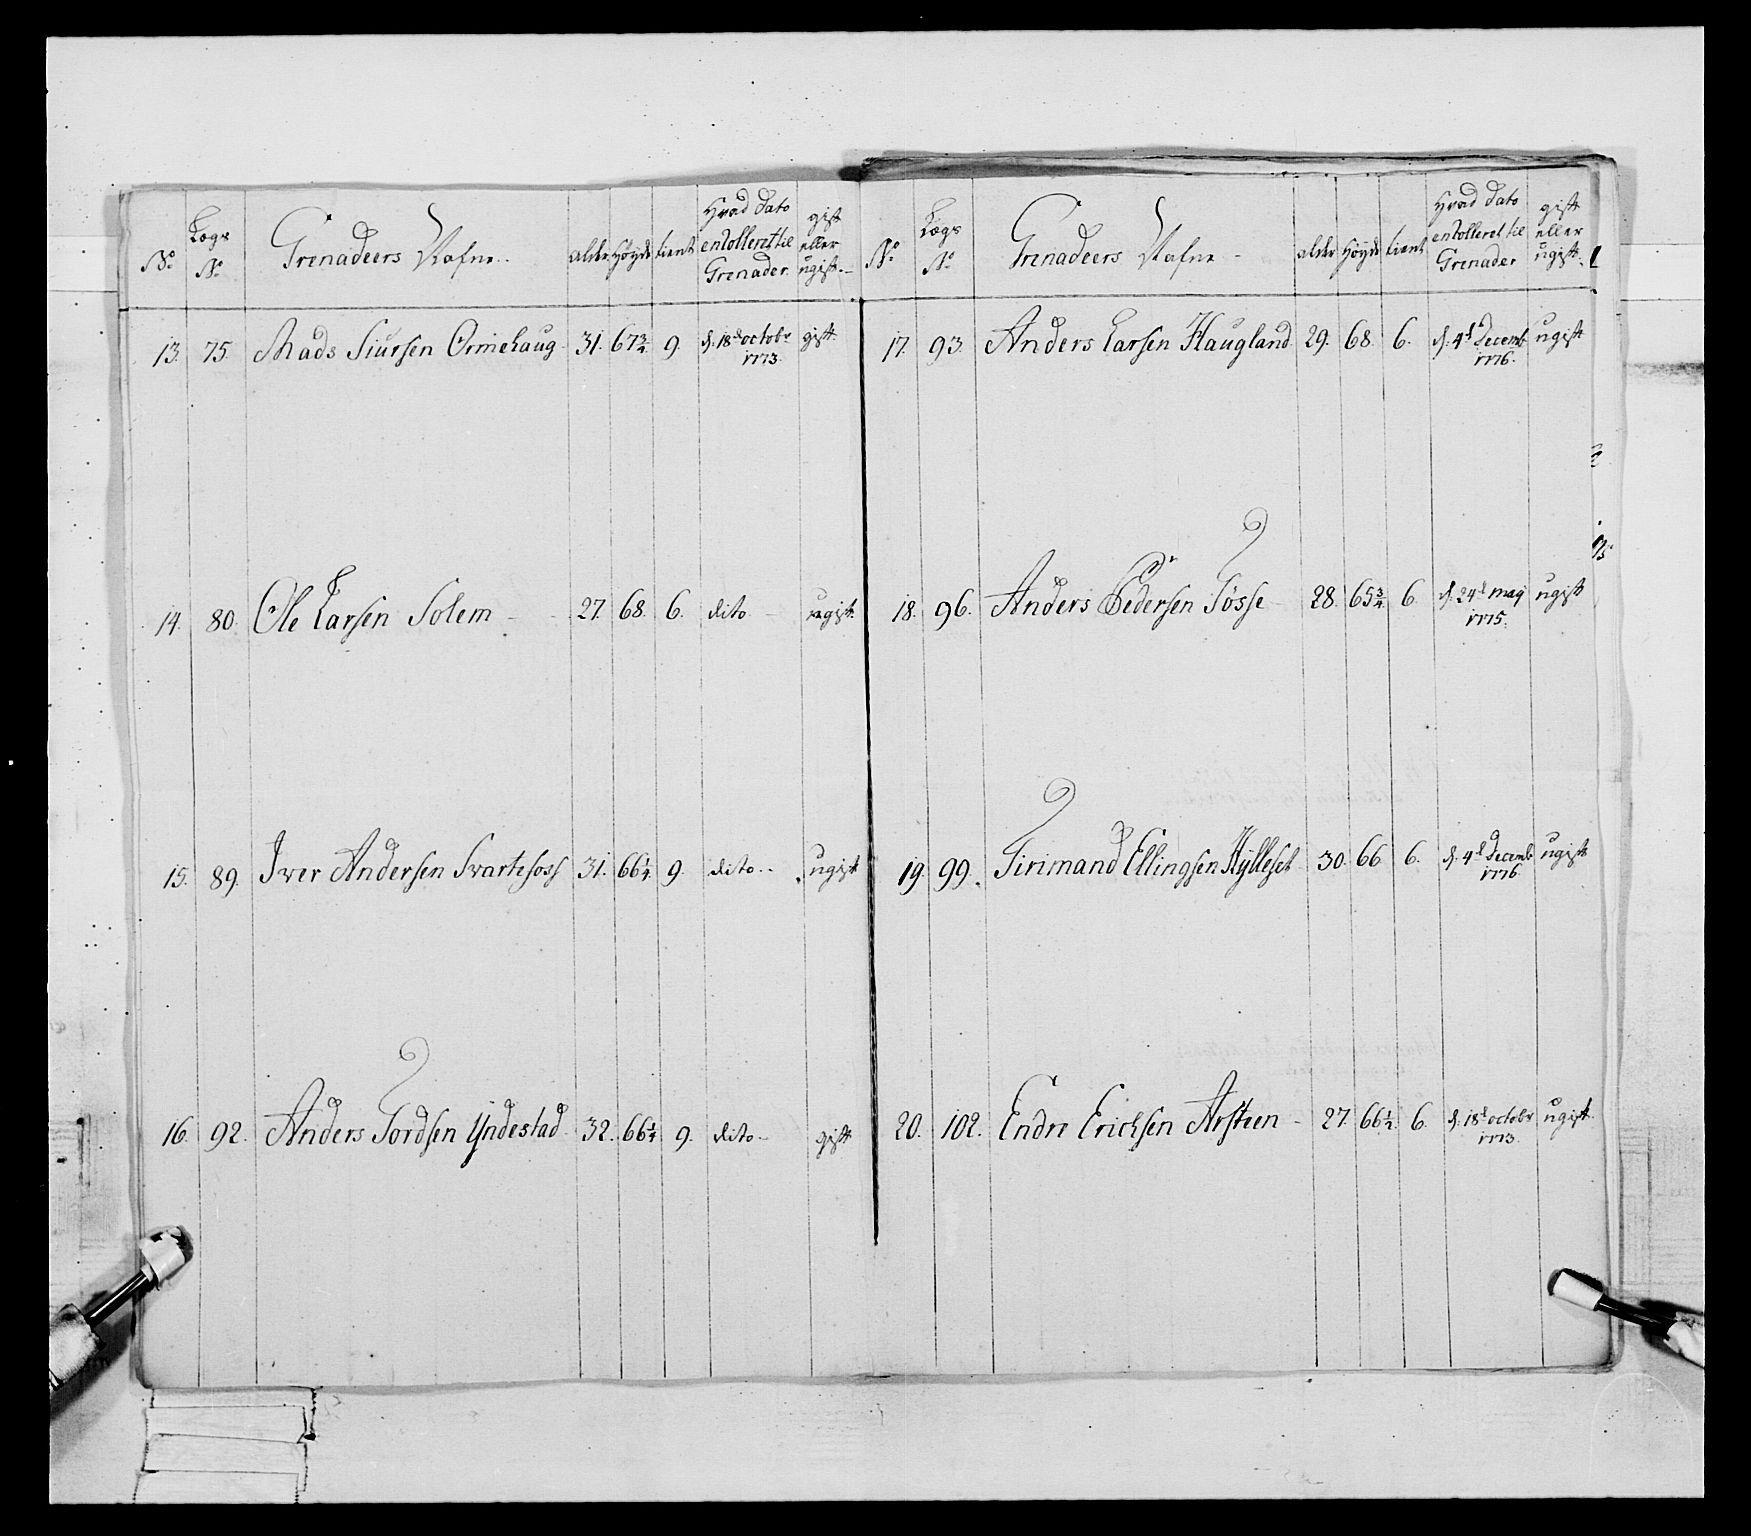 No. Lægs No. Grenadeers Nafne. alder. Höyde tient Hvad Dato enrolleret til Grenader. gift eller ugift.
13. 75. Mads Siursen Ormehaug 31. 67 3/4 9. d. 18de octobr. 1773. gift.
14. 80. Ole Larsen Solem 27. 68. 6. dito ugift.
15. 89. Iver Andersen Svartefoss 31. 66 1/4 9. dito ugift
16. 92. Anders Tordsen Yndestad 32. 66 1/4 9. dito gift
No. Lægs No. Grenadeers Nafne alder Höyde tient Hvad Dato enrolleret til Grenader gift eller ugift.
17. 93. Anders Larsen Haugland 29. 68. 6. d. 4de Decemb. 1776. ugift
18. 96. Anders Pedersen Tösse 28. 65 3/4 6. d. 24de maij 1775. ugift
19. 99. Tirimand Ellingsen Hylleset 30. 66 6. d. 4de Decemb. 1776. ugift
20. 102. Endre Erichsen Arsteen 27. 66 1/2 6. d. 18de octobr. 1773. ugift